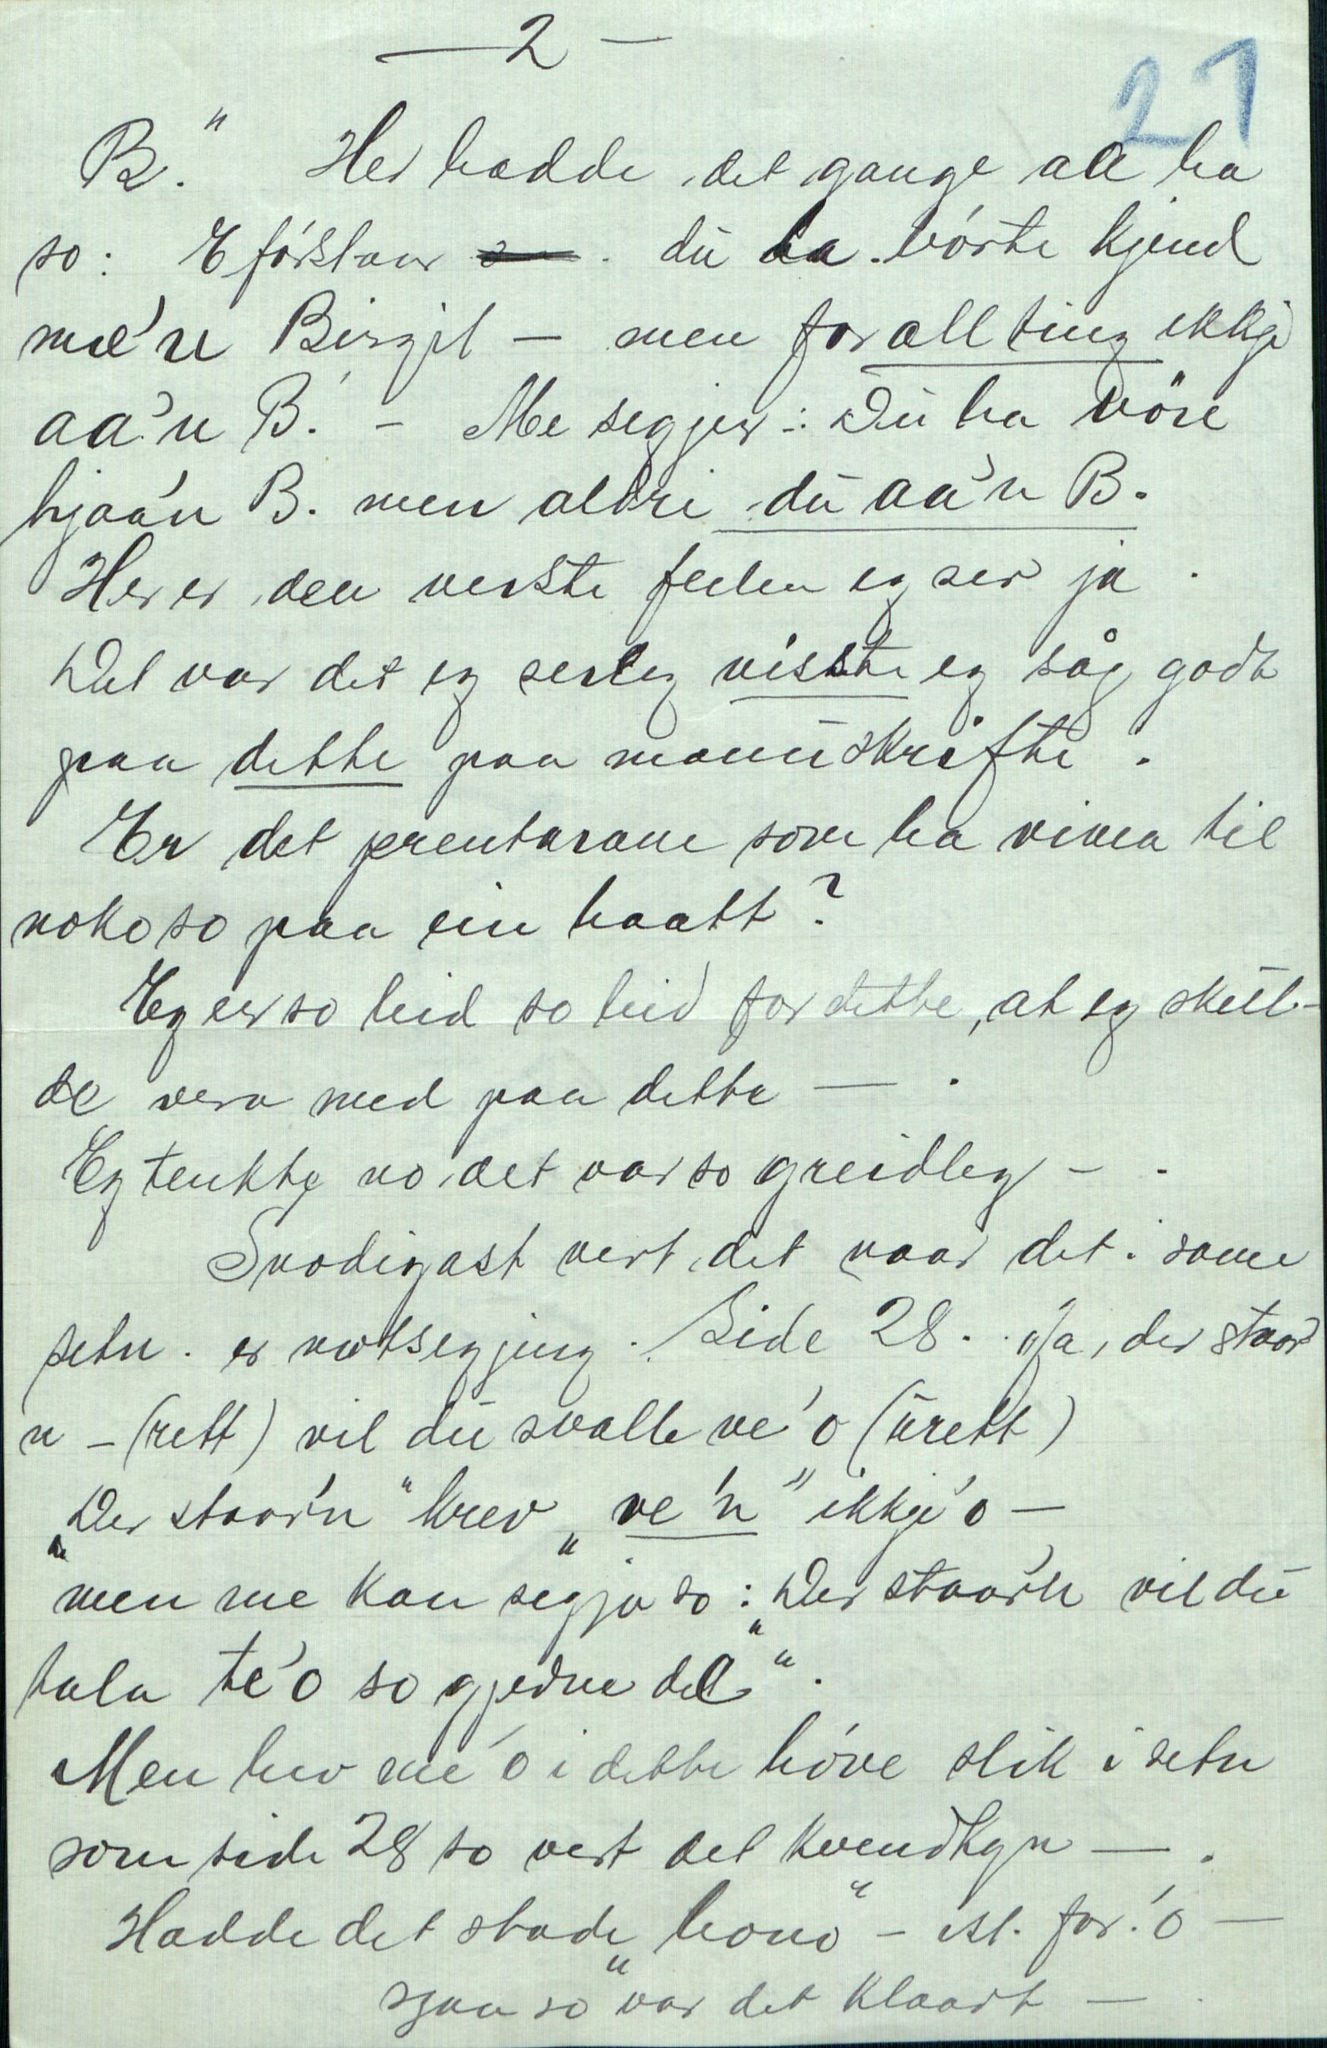 — 2 —
21
B." Her hadde det gange aa ha
so: E fórstaar du ha vórte kjend
mæ'n Birgit — men for all ting ikkje
aa'n B. — Me segjer: Du ha vöre
hjaa'n B. men aldri du aa'n B.
Her er den verste feilen eg ser ja.
Det var det eg serleg visste eg såg godt
paa dette paa manuskrifte.
Er det prentarane som ha vivla til
noko so paa ein haatt?
Eg er so leid so leid for dette, at eg skul-
de vera med paa dette — .
Eg tenkte no det var so greidleg — .
Snodigast vert det naar det i same
setn. er motsegjing. Side 28. Ja, der staar
n — (rett) vil du svalle ve'o (urett)
„Der staar'n" krev „ve'n" ikkje'o —
men me kan segja so: „Der staar'n vil du
tala te'o so gjedne de".
Men hev me 'o i dette höve slik i setn
som side 28 so vert det kvendkyn — .
Hadde det stade „hono" — ist. for 'o —
sjaa so var det klaart — .